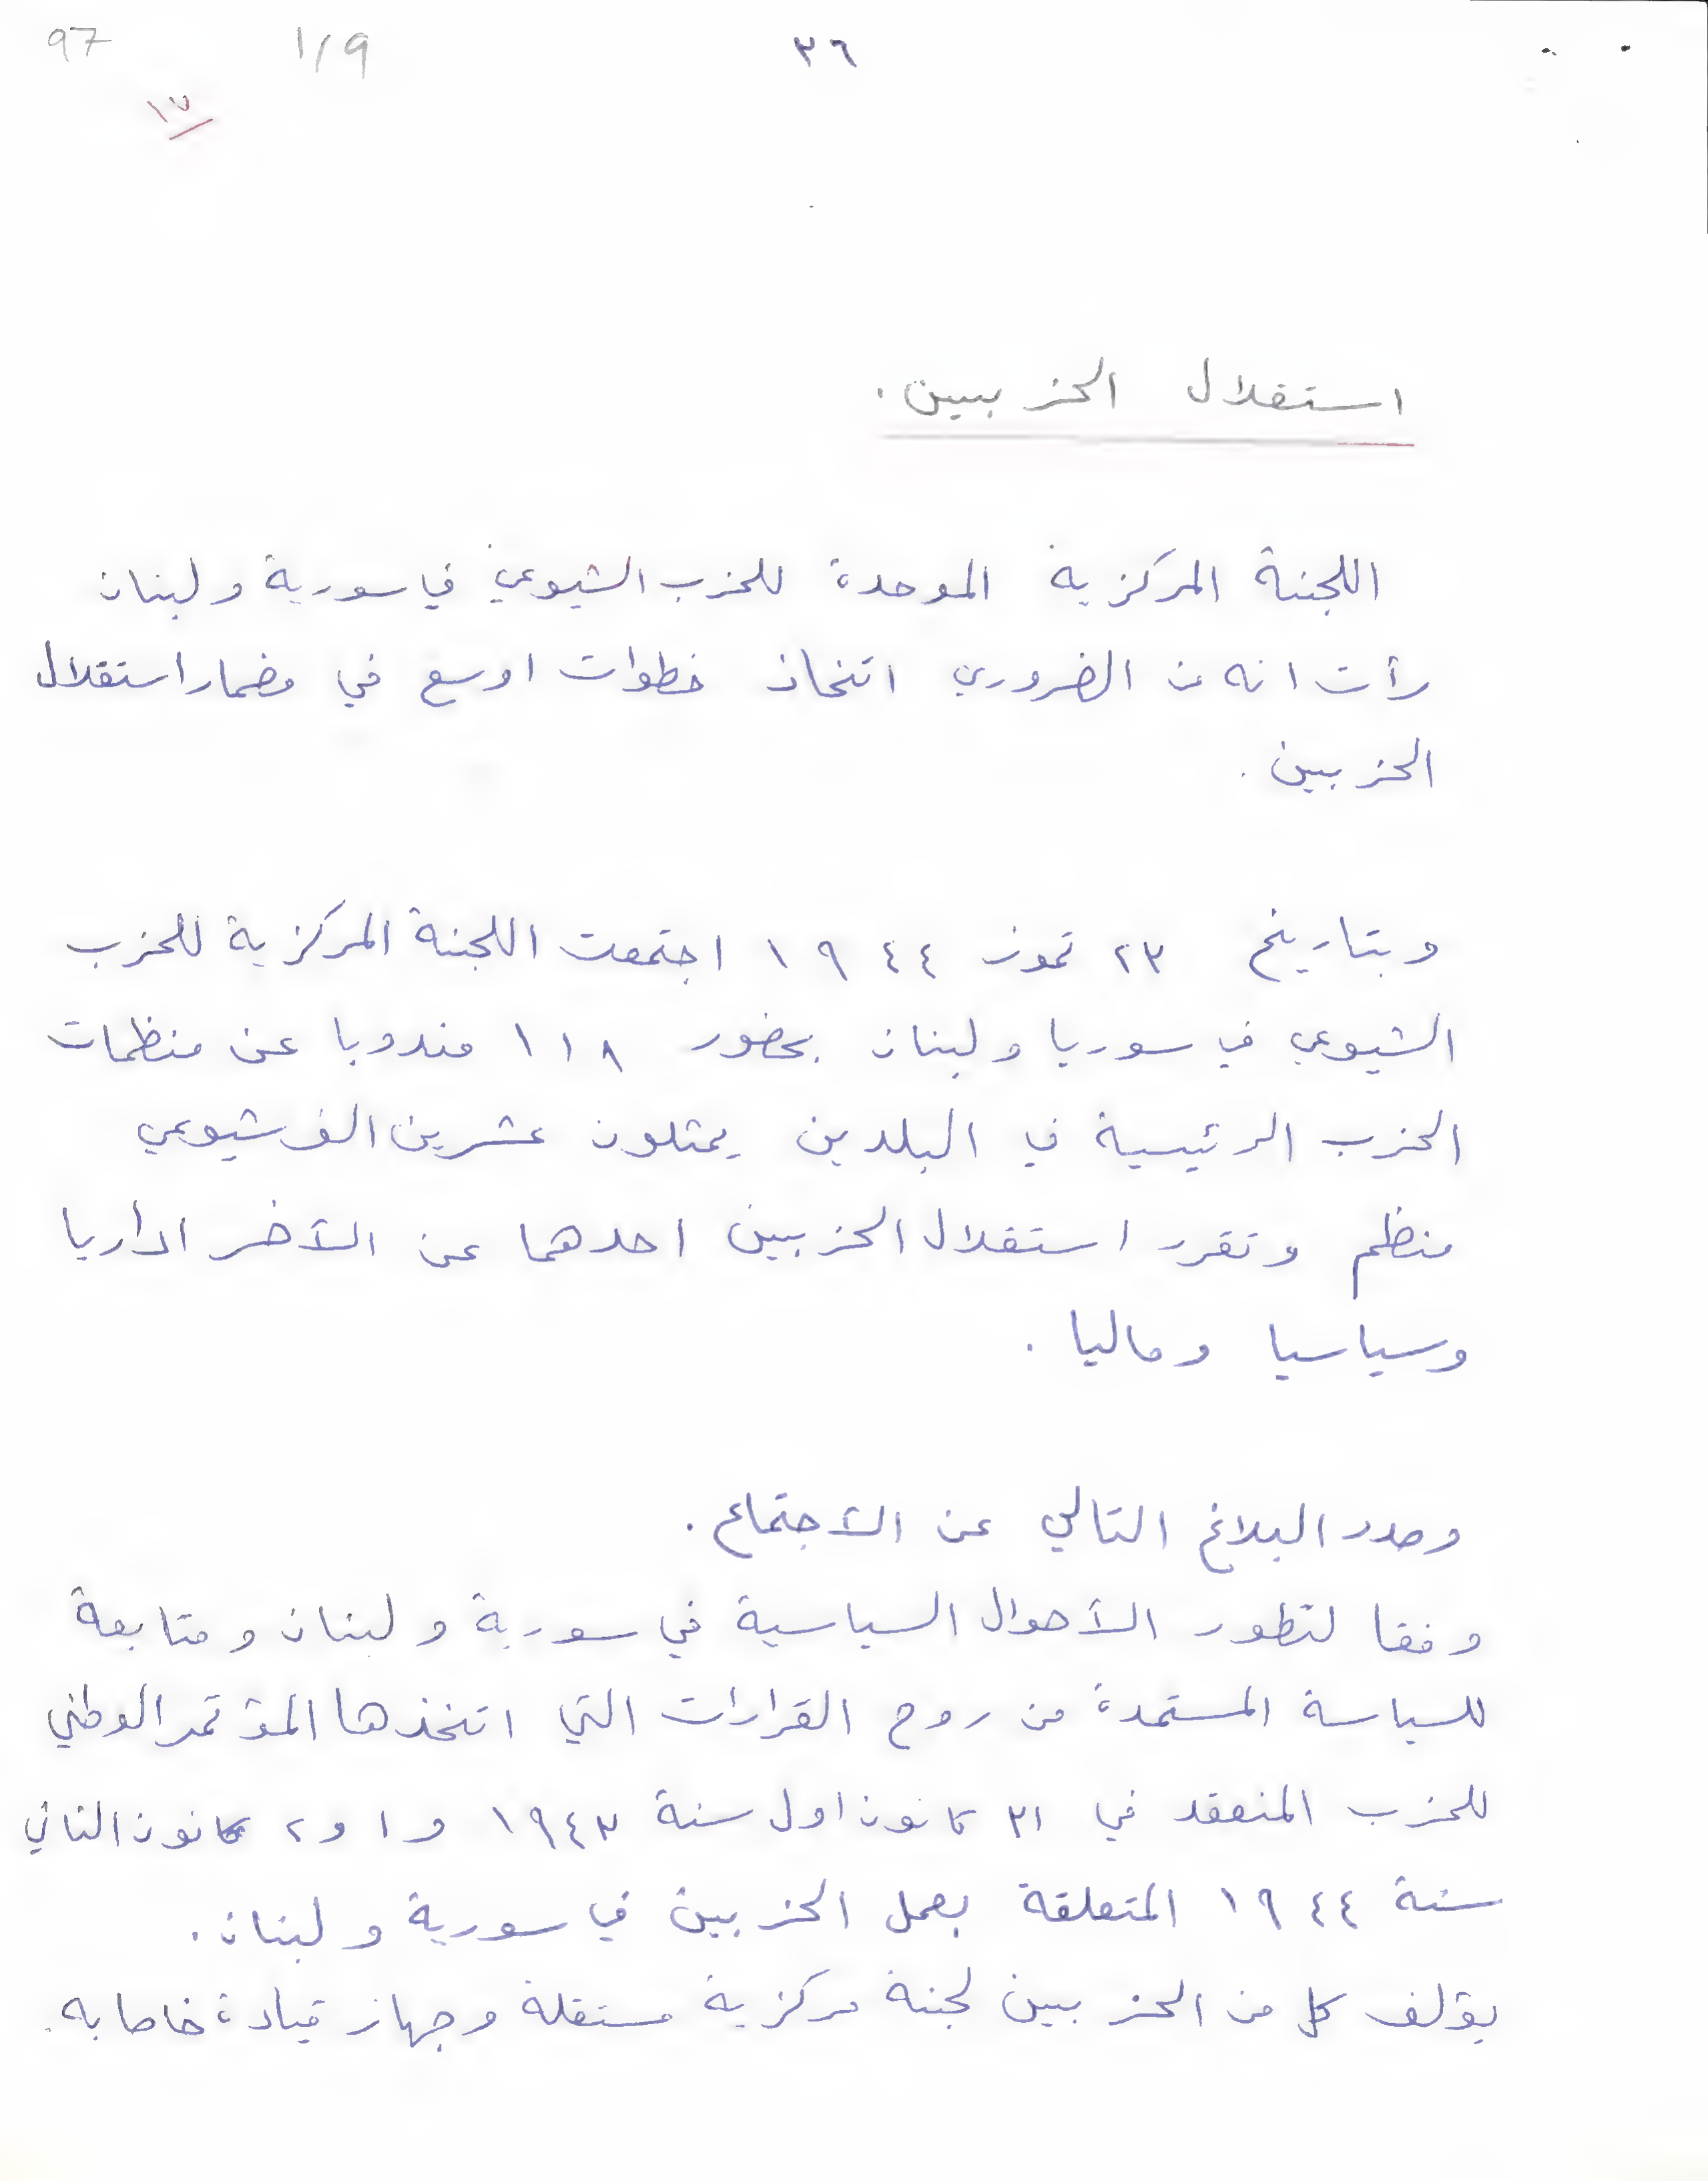 97 1/9 ٣٦
١٣
استقلال الحزبيين.
اللجنة المركزية الموحدة للحزب الشيوعي في سورية ولبنان
رأت انه من الضروري اتخاذ خطوات اوسع في مضمار استقلال
الحزبين.
وبتاريخ ٢٣ تموز ١٩٤٤ اجتمعت اللجنة المركزية للحزب
الشيوعي في سوريا ولبنان بحضور ١١٨ مندوبا عن منظمات
الحزب الرئيسية في البلدين يمثلون عشرين الف شيوعي
منظم وتقرر استقلال الحزبين احدهما عن الآخر اداريا
وسياسيا وماليا.
وصدر البلاغ التالي عن الآجتماع.
وفقا لتطور الآحوال السياسية في سورية ولبنان ومتابعة
للسياسة المستمدة من روح القرارات التي اتخذها المؤتمر الوطني
للحزب المنعقد في ٣١ كانون اول سنة ١٩٤٣ و١ و٢ كانون الثاني
سنة ١٩٤٤ المتعلقة بعمل الحزبين في سورية ولبنان.
يؤلف كل من الحزبين لجنة مركزية مستقلة وجهاز قيادة خاصا به.